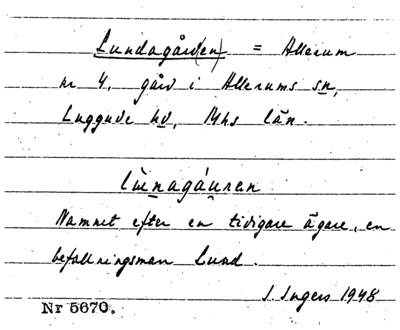 Lundagård(en) = Allerum
nr 4, gård i Allerums sn,
Luggude hd, Mhs län.
lùnagáuren
Namnet efter en tidigare ägare, en
befallningsman Lund.
I. Ingers 1948
Nr 5670.